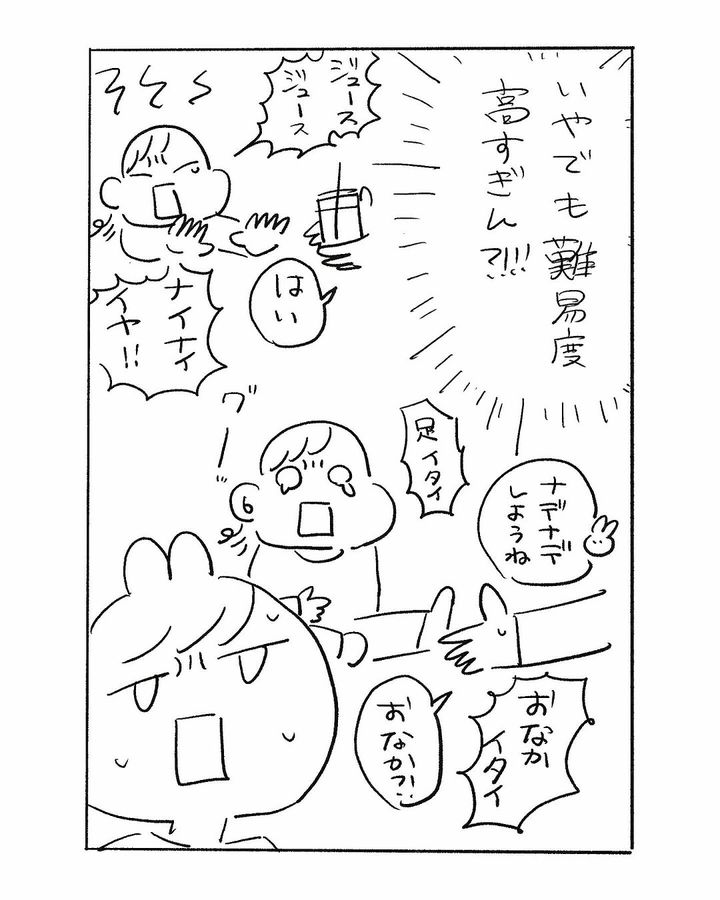 いやでも難易度
高すぎん?!!!
ジュース
ジュース
はい
ナイナイ
イヤ!!
足イタイ
ナデナデ
しようね
おなか
イタイ
おなか?!